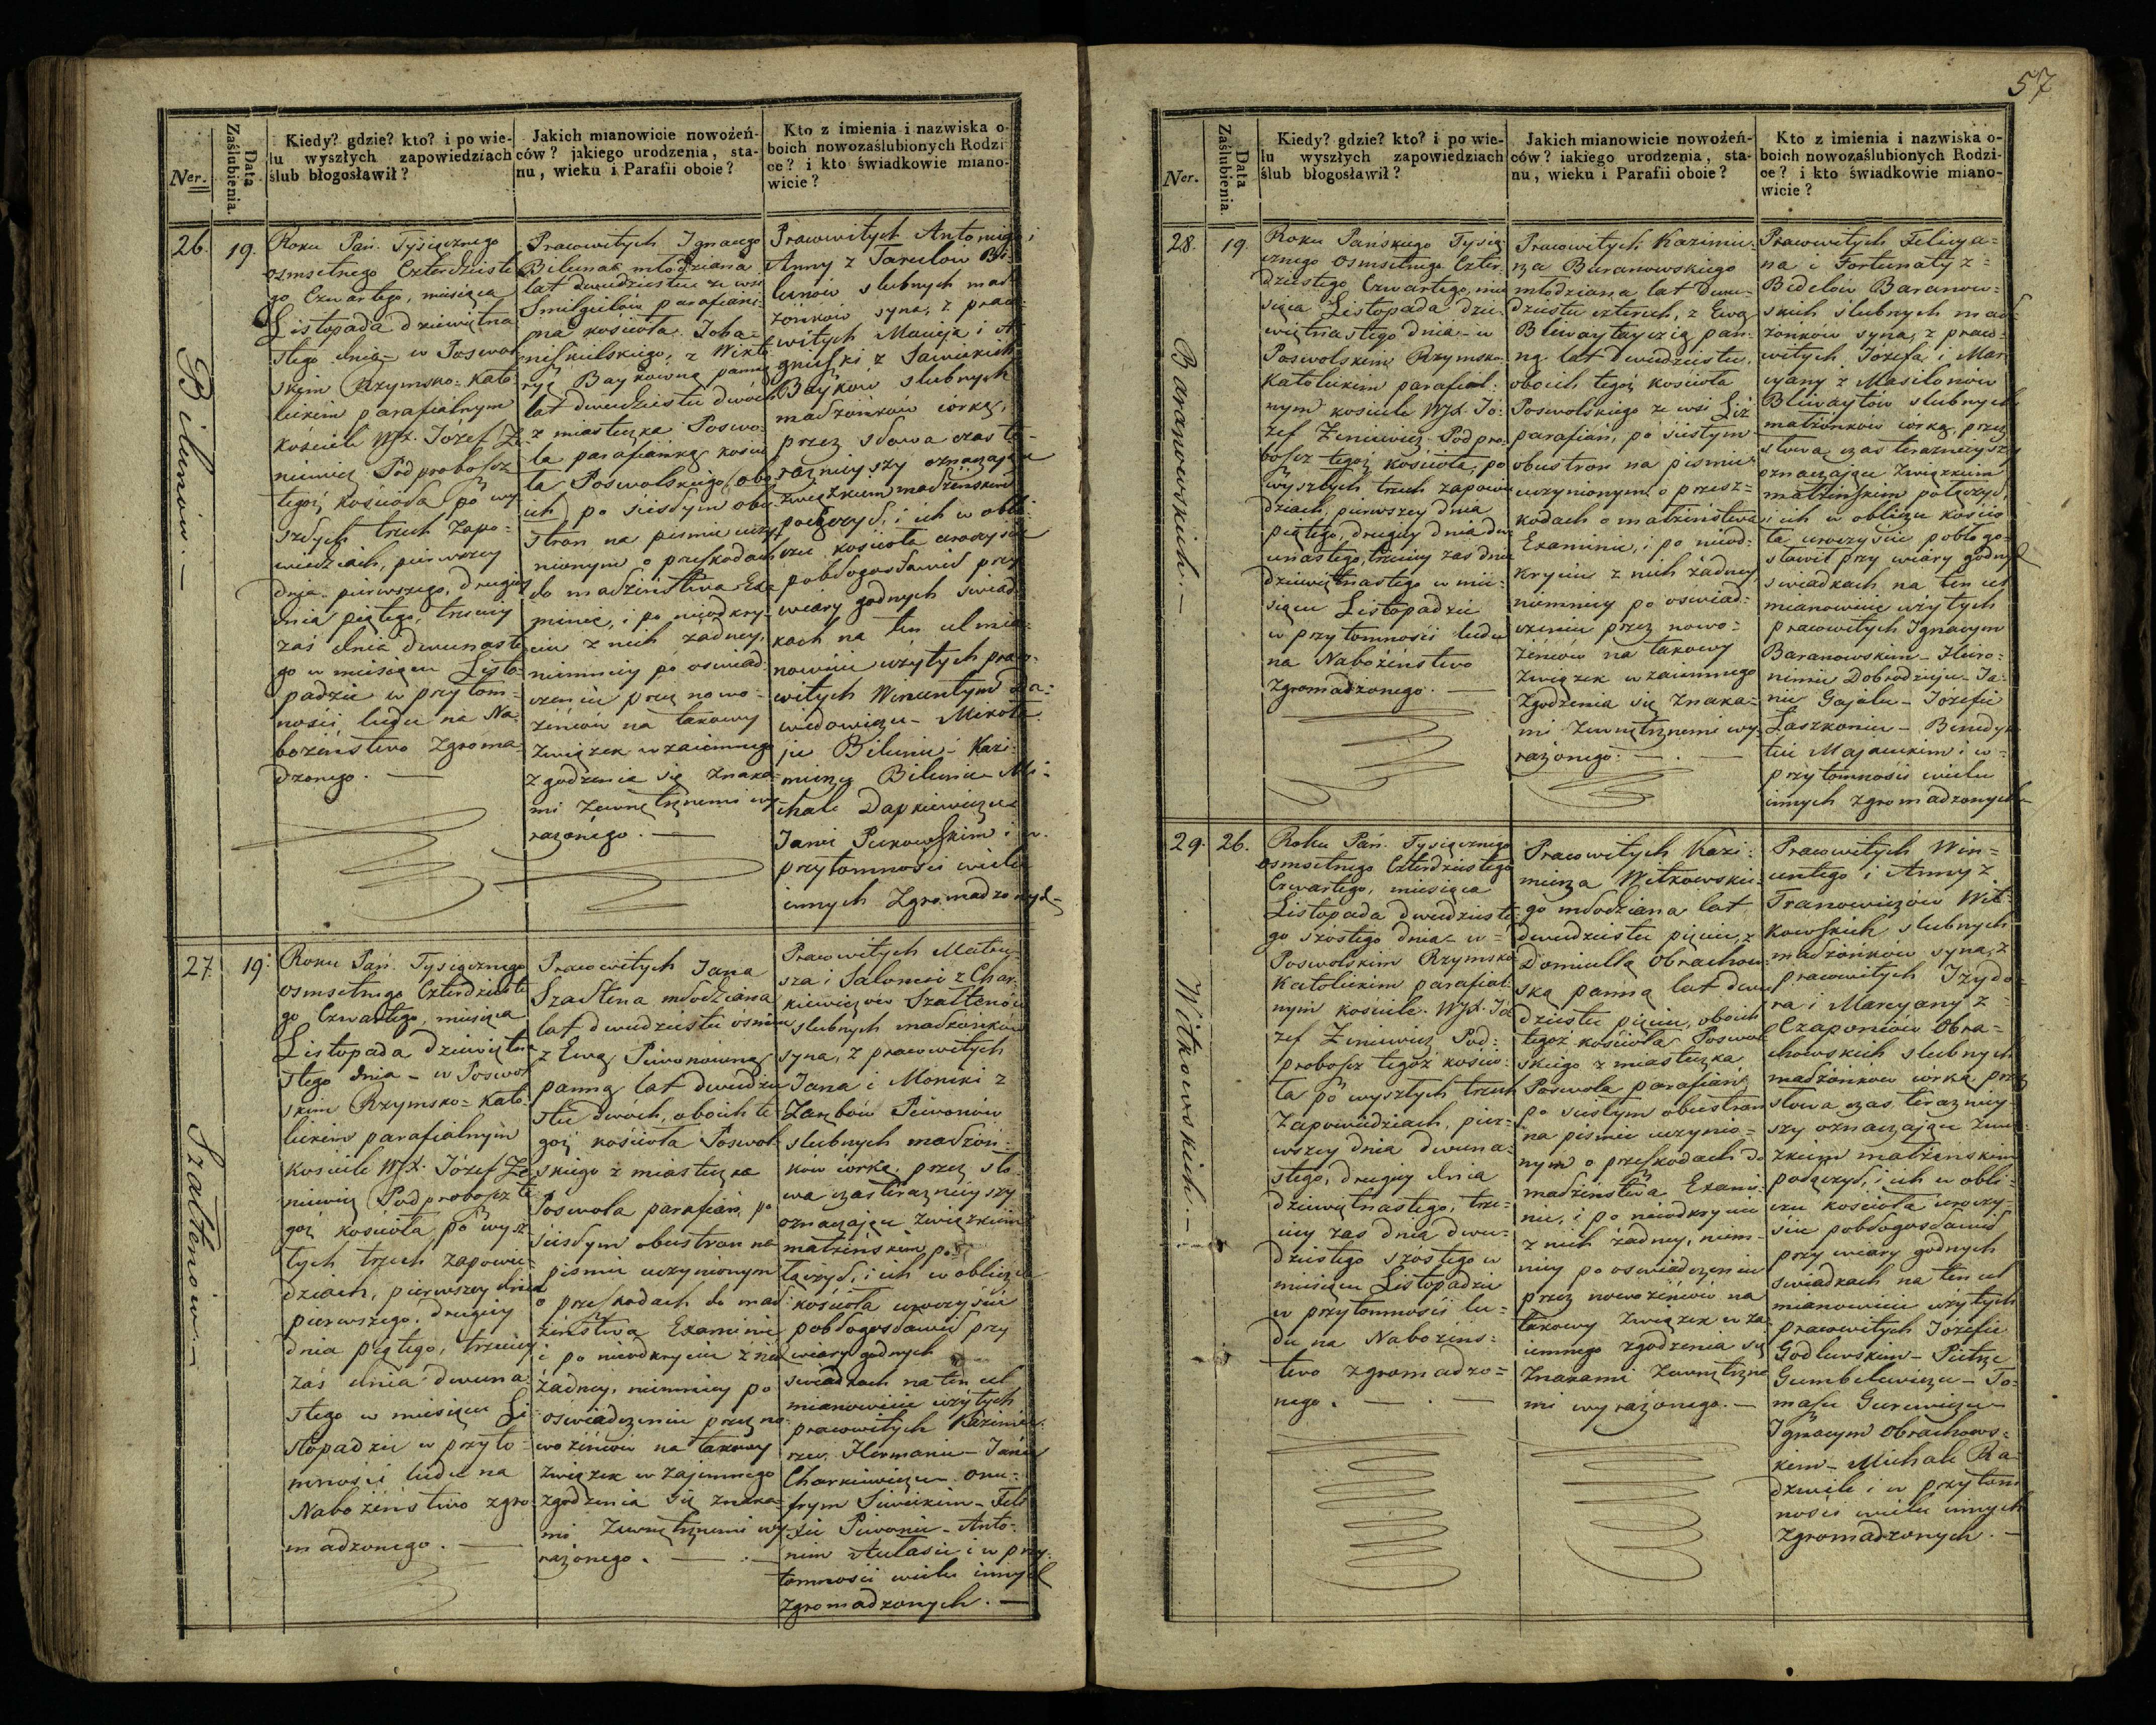 Ner.
Data
Zaślubienia.
Kiedy? gdzie? kto? i po wie-
lu wyszłych zapowiedziach
ślub błogosławił?
Jakich mianowicie nowożeń-
ców? jakiego urodzenia, sta-
nu, wieku i Parafii oboie?
Kto z imienia i nazwiska o-
boich nowozaślubionych Rodzi
ce? i kto świadkowie miano-
wicie?
26.
Bilunow. —
19.
Roku Pań. Tysiącznego
osmsetnego Czterdzieste
go Czwartego, miesiąca
Listopada dziewiętna
stego dnia – w Poswol
skim Rzymsko=Kato-
lickim parafialnym
kościele WJX. Józef Ze
niewicz Podprobosz
tegoż kościoła po wy
szłych trzech zapo-
wiedziach, pierwszey
dnia pierwszego, drugiey
dnia piątego, trzeciey
zaś dnia dwunaste
go w miesiącu Listo-
padzie w przytom-
ności ludu na Na-
bożeństwo zgroma-
dzonego. —
Pracowitych Ignacego
Biluna młodziana
lat dwudziestu ze wsi
Smilgiów parafiani-
na kościoła Joha-
niszkielskiego, z Wikto
ryą Baykowną panną
lat dwudziestu dwóch
z miasteczka Poswo-
la parafianką kościo
ła Poswolskiego, obo
ich po ścisłym obu-
stron na pismie uczy
nionym o przeszkodach
do małżeństwa Exa
minie, i po nieodkry-
ciu z nich żadney,
niemniey po oswiad-
czeniu przez nowo-
żeńców na takowy
związek wzaiemnego
zgodzenia się znaka-
mi zewnętrznemi wy-
rażonego. —
Pracowitych Antoniego i
Anny z Tarulow Bi-
lunow slubnych mał-
żonków syna, z praco-
witych Macieja i A-
gnieszki z Sawickich
Bayków slubnych
małżonków córkę,
przez słowa czas te-
raznieyszy oznaczające
związkiem małżeńskim
połączył, i ich w obli-
czu kościoła uroczyscie
pobłogosławił przy
wiary godnych swiad-
kach na ten cel mia-
nowicie użytych praco-
witych Wincentym Da-
widowiczu – Mikoła
ju Bilunie – Kazi-
mierzu Bilunie – Mi-
chale Dapkiewiczu
Janie Pukowskim i w
przytomności wielu
innych Zgromadzonych –
27.
Szaltenow. —
19.
Roku Pań. Tysiącznego
osmsetnego Czterdzieste
go Czwartego, miesiąca
Listopada dziewiętna
stego dnia – w Poswol
skim Rzymsko=Kato-
lickim parafialnym
kościele WJX. Józef Ze
niewicz Podprobosz te
goż kościoła po wysz
łych trzech zapowie-
dziach, pierwszey dnia
pierwszego, drugiey
dnia piątego, trzeciey
zaś dnia dwuna
stego w miesiącu Li
stopadzie w przyto-
mności ludu na
Nabożeństwo zgro-
madzonego. —
Pracowitych Jana
Szaltena młodziana
lat dwudziestu ośmiu
z Ewą Piwonowną
panną lat dwudzie
stu dwóch, oboich te
goż kościoła Poswol-
skiego z miasteczka
Poswola parafian, po
ścisłym obustron na
pismie uczynionym
o przeszkodach do mał
żeństwa Examinie
i po nieodkryciu z nich
żadney, niemniey po
oświadczeniu przez no-
wożeńców na takowy
związek wzajemnego
zgodzenia się znaka-
mi zewnętrznemi wy-
rażonego. —
Pracowitych Mateu-
sza i Salomei z Char-
kiewiczow Szaltenow
slubnych małżonków
syna, z pracowitych
Jana i Moniki z
Zarębów Piwonów
slubnych małżon-
ków córkę, przez sło-
wa czas teraznieyszy
oznaczające związkiem
małżeńskim po-
łączył, i ich w obliczu
kościoła uroczyscie
pobłogosławił przy
wiary godnych
świadkach na ten cel
mianowicie użytych
pracowitych Kazimie-
rzu Hermanie – Janie
Charkiewiczu – Onu-
frym Siwickim – Feli
xie Piwonie – Anto-
nim Autasie i w przy-
tomności wielu innych
zgromadzonych. —
57
Ner.
Data
Zaślubienia.
Kiedy? gdzie? kto? i po wie-
lu wyszłych zapowiedziach
ślub błogosławił?
Jakich mianowicie nowożeń-
ców? iakiego urodzenia, sta-
nu, wieku i Parafii oboie?
Kto z imienia i nazwiska o-
boich nowozaślubionych Rodzi-
ce? i kto świadkowie miano-
wicie?
28.
Baranowskich. —
19.
Roku Pańskiego Tysią-
cznego osmsetnego Czter-
dziestego Czwartego, mie
siąca Listopada dzie-
więtnastego dnia – w
Poswolskim Rzymsko-
Katolickim parafial-
nym kościele WJX. Jó-
zef Zeniewicz Podpro-
bosz tegoż kościoła, po
wyszłych trzech zapowie
dziach, pierwszey dnia
piątego, drugiey dnia dw
unastego, trzeciey zaś dnia
dziewiętnastego w mie-
siącu Listopadzie
w przytomności ludu
na Nabożeństwo
zgromadzonego. —
Pracowitych Kazimie-
rza Baranowskiego
młodziana lat dwu-
dziestu czterech, z Ewą
Blewaytayczią pan-
ną lat dwudziestu,
oboich tegoż kościoła
Poswolskiego ze wsi
parafian, po ścisłym
obustron na pismie
uczynionym o przesz-
kodach o małżeństwa
Examinie, i po nieod-
kryciu z nich żadney
niemniey po oswiad-
czeniu przez nowo-
żeńców na takowy
związek wzaiemnego
zgodzenia się znaka-
mi zewnętrznemi wy-
rażonego. — . —
Pracowitych Felicya-
na i Fortunaty z
Bidelow Baranow-
skich slubnych mał-
żonków syna, z praco-
witych Jozefa i Mar
cyany z Masilonów
Blewaytów slubnych
małżonków córkę, przez
słowa czas teraznieyszy
oznaczające związkiem
małżeńskim połączył,
i ich w obliczu kościo
ła uroczyscie pobłogo-
sławił przy wiary godnych
swiadkach na ten cel
mianowicie użytych
pracowitych Ignacym
Baranowskim – Hiero-
nimie Dobrodzieju – Ja-
nie Gajalu – Józefie
Łaszkoniu – Benedyk-
cie Majewskim i w
przytomności wielu
innych zgromadzonych –
29.
Witkowskich. —
26.
Roku Pań. Tysiącznego
osmsetnego Czterdziestego
Czwartego, miesiąca
Listopada dwudzieste
go szóstego dnia – w
Poswolskim Rzymsko
Katolickim parafial-
nym kościele WJX. Jó
zef Zeniewicz Pod-
probosz tegoż kościo-
ła po wyszłych trzech
Zapowiedziach, pier-
wszey dnia dwuna-
stego, drugiey dnia
dziewiętnastego, trze-
ciey zaś dnia dwu-
dziestego szóstego w
miesiącu Listopadzie
w przytomności lu-
du na Nabożeńs-
two zgromadzo-
nego. — . —
Pracowitych Kazi-
mierza Witkowskie-
go młodziana lat
dwudziestu pięciu, z
Domicellą Obrachow-
ską panną lat dwu
dziestu pięciu, oboich
tegoż kościoła Poswol
skiego z miasteczka
Poswola parafian,
po ścisłym obustron
na pismie uczynio-
nym o przeszkodach do
małżeństwa Exami-
nie, i po nieodkryciu
z nich żadney, niem-
niey po oswiadczeniu
przez nowożeńców na
takowy związek wza-
iemnego zgodzenia się
znakami zewnętrzne
mi wyrażonego. —
Pracowitych Win-
centego i Anny z
Tranowiczów Wit-
kowskich slubnych
małżonków syna, z
pracowitych Izydo-
ra i Marcyany z
Czaponiów Obra-
chowskich slubnych
małżonków córkę przez
słowa czas terazniey-
szy oznaczające zwią-
zkiem małżeńskim
połączył, i ich w obli-
czu kościoła uroczy-
ście pobłogosławił
przy wiary godnych
swiadkach na ten cel
mianowicie użytych
pracowitych Józefie
Godlewskim – Piotrze
Gumbelewiczu – To-
maszu Gurewiczu
Ignacym Obrachows-
kim – Michale Ra-
dziwile i w przytom
ności wielu innych
Zgromadzonych. —